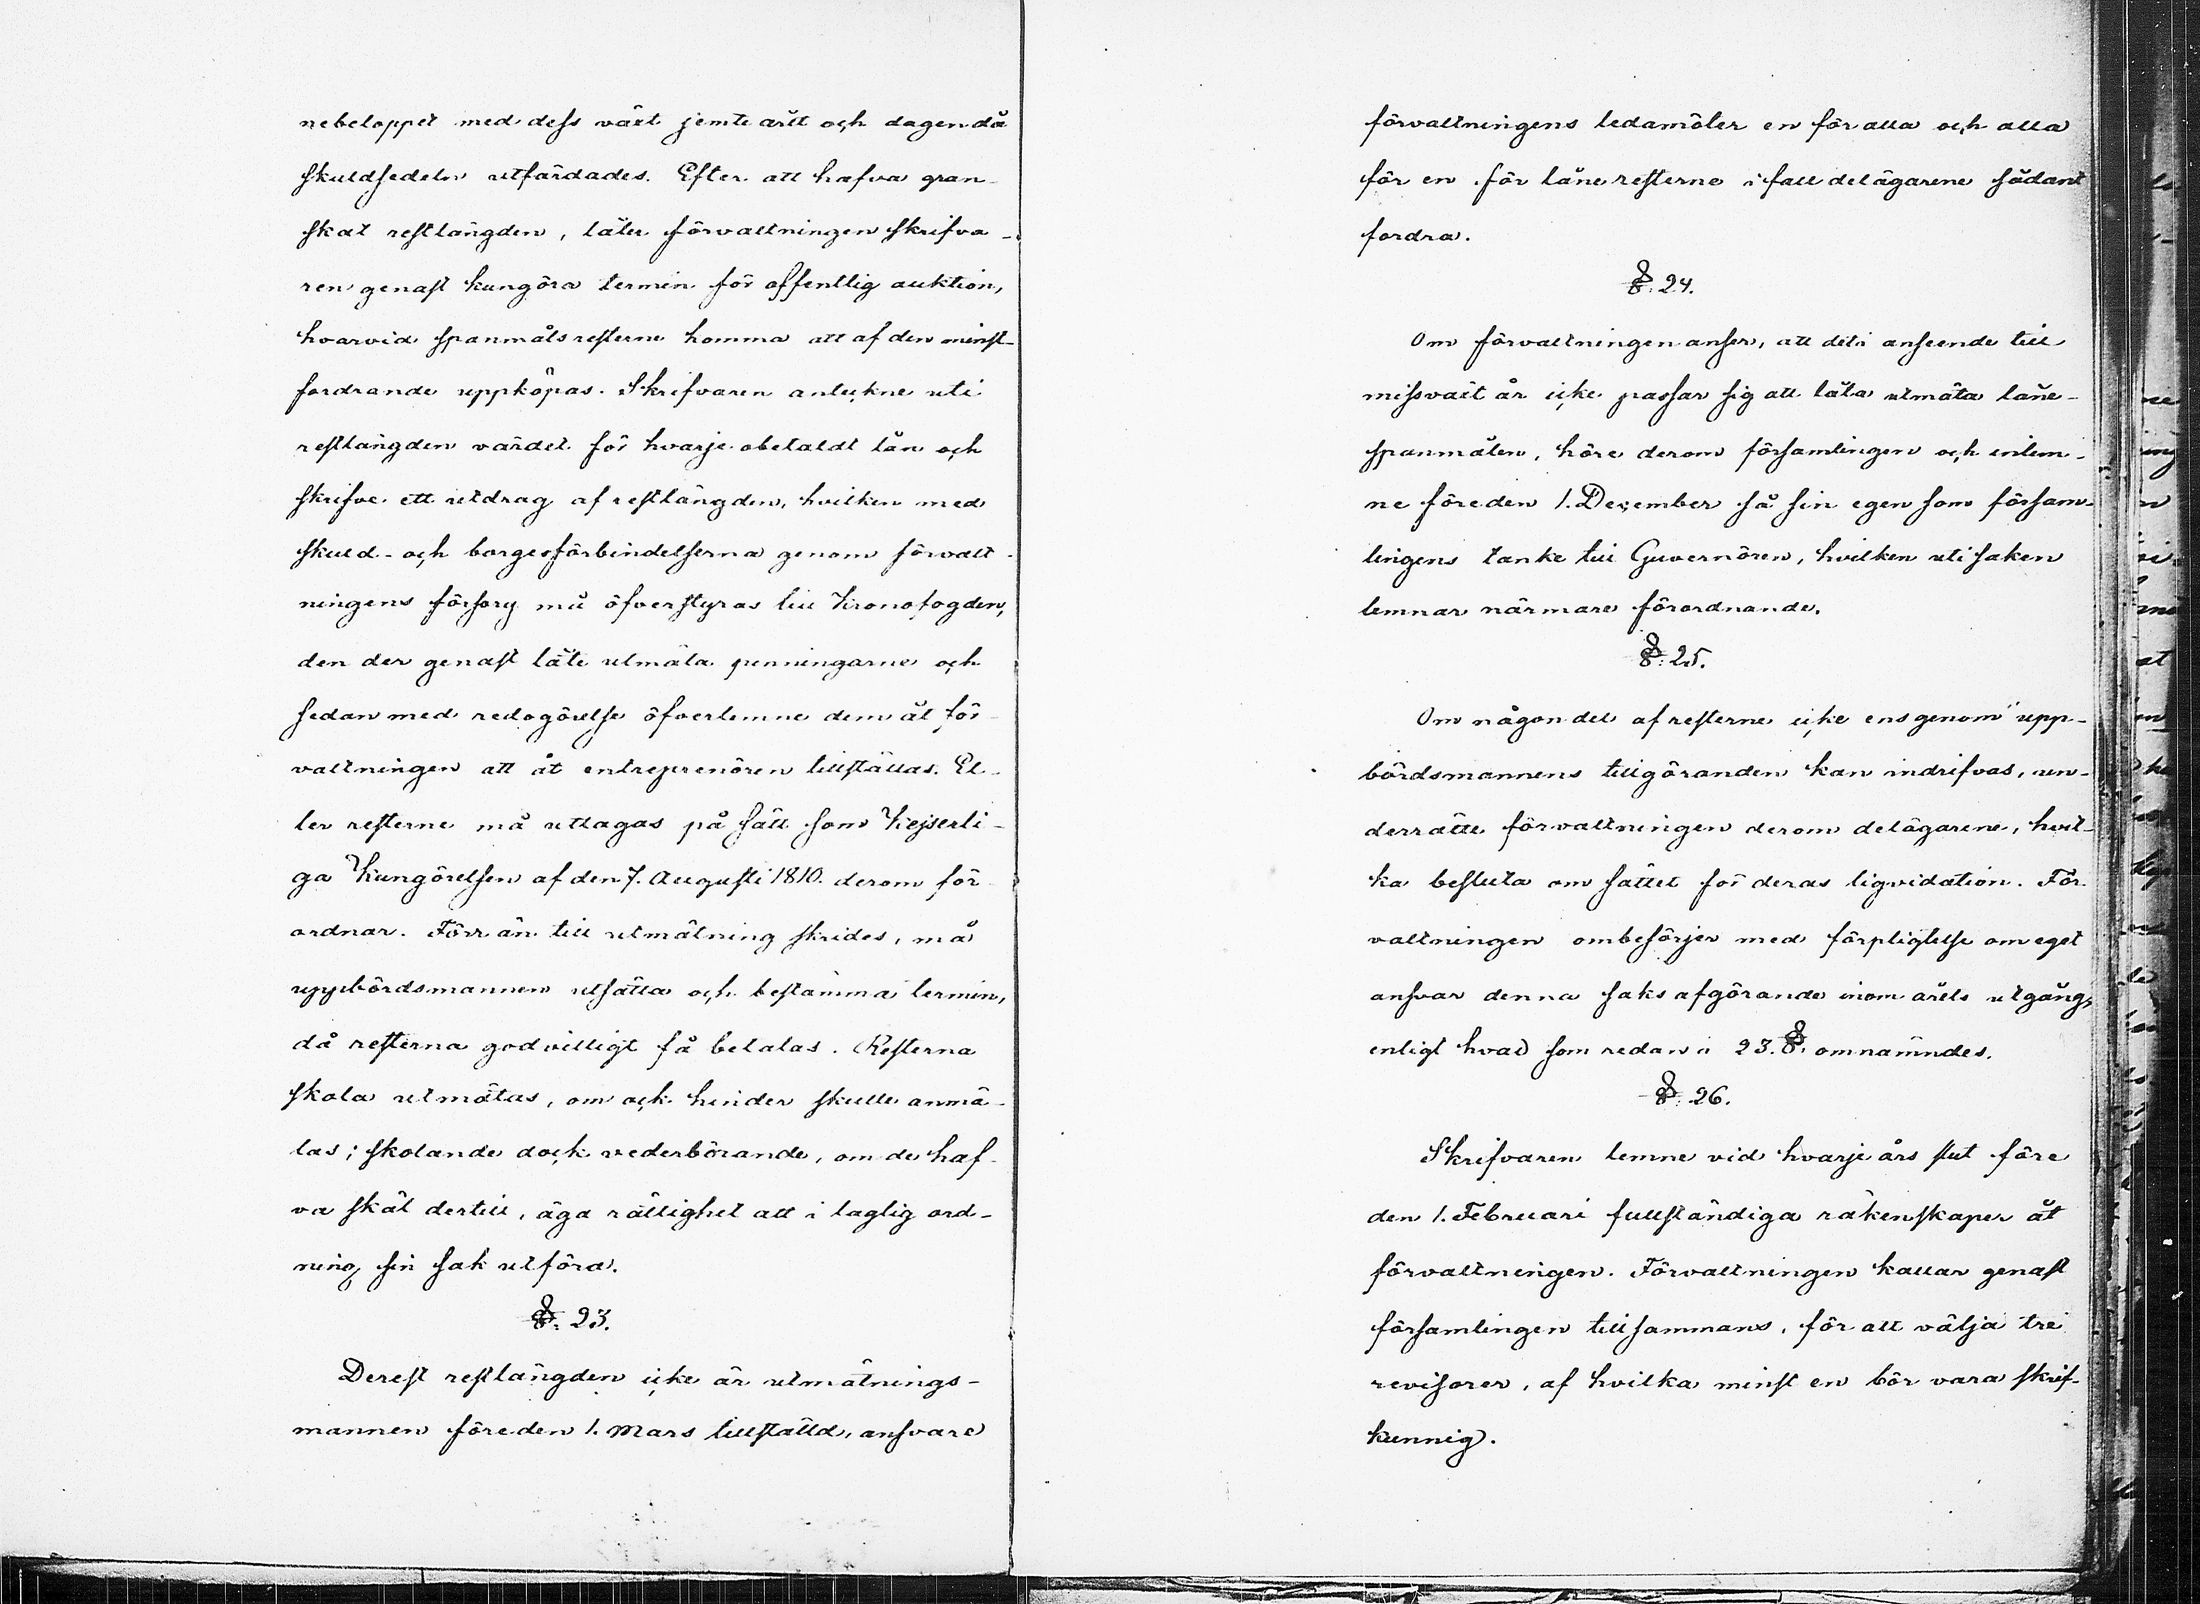 nebeloppet med dess växt jemte årtt och dagen då
skuldsedeln utfärdades. Efter att hafva gran-
skat restlängden, låter förvaltningen skrifva-
ren genast kungöra termin för offentlig auktion,
hvarvid spanmålsresterne komma att af den minst-
fordrande uppköpas. Skrifvaren anteckne uti
restlängden värdet för hvarje obetaldt lån och
skrifve ett utdrag af restlängden, hvilken med
skuld- och borgesförbindelserna genom förvalt-
ningens försorg må öfverstyras till Kronofogden,
den der genast låte utmäta penningarne och
sedan med redogörelse öfverlemne dem åt för-
valtningen att åt entreprenören tillställas. El-
ler resterne må uttagas på sätt som Kejserli-
ga Kungörelsen af den 7. Augusti 1810. derom för-
ordnar. Förr än till utmätning skrides, må
uppbördsmannen utsätta och bestämma termin,
då resterna godvilligt få betalas. Resterna
skola utmätas, om ock hinder skulle anmä-
las; skolande dock vederbörande, om de haf-
va skäl dertill, äga rättighet att i laglig ord-
ning sin sak utföra.
§. 23.
Derest restlängden icke är utmätnings-
mannen före den 1. Mars tillställd, ansvare
förvaltningens ledamöter en för alla och alla
för en för låneresterne i fall delägarene sådant
fordra.
§. 24.
Om förvaltningen anser, att det i anseende till
missväxt år icke passar sig att låta utmäta låne-
spanmålen, höre derom församlingen och inlem-
ne före den 1. December så sin egen som försam-
lingens tanke till Guvernören, hvilken uti saken
lemnar närmare förordnande.
§. 25.
Om någon del af resterne icke ens genom upp-
bördsmannens tillgöranden kan indrifvas, un-
derrätte förvaltningen derom delägarene, hvil-
ka besluta om sättet för deras liqvidation. För-
valtningen ombesörjer med förpligtelse om eget
ansvar denna saks afgörande inom årets utgång,
enligt hvad som redan i 23. §. omnämndes.
§. 26.
Skrifvaren lemne vid hvarje års slut före
den 1. Februari fullständiga räkenskaper åt
förvaltningen. Förvaltningen kallar genast
församlingen tillsammans, för att välja tre
revisorer, af hvilka minst en bör vara skrif-
kunnig.